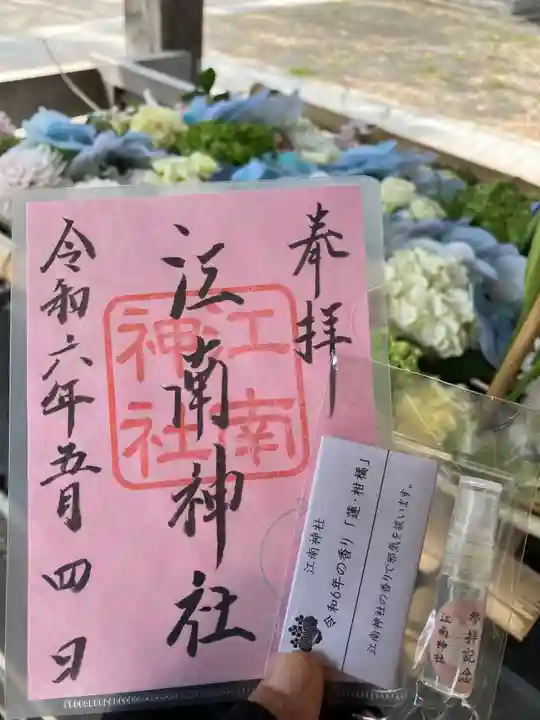 奉拝
江南神社
江南
神社
令和六年五月四日
江南神社
令和6年の香り「蓮・柑橘」
江南神社の香りで邪気を祓います。
参拝記念
江南神社